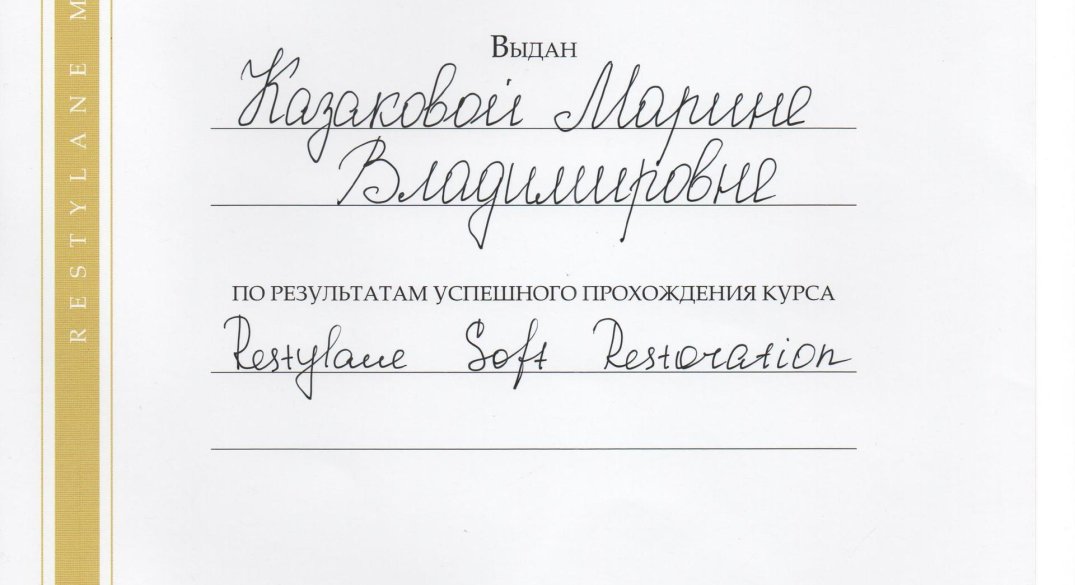 RESTYLANE M
Выдан
Казаковой Марине
Владимировне
ПО РЕЗУЛЬТАТАМ УСПЕШНОГО ПРОХОЖДЕНИЯ КУРСА
Restylane Soft Restoration